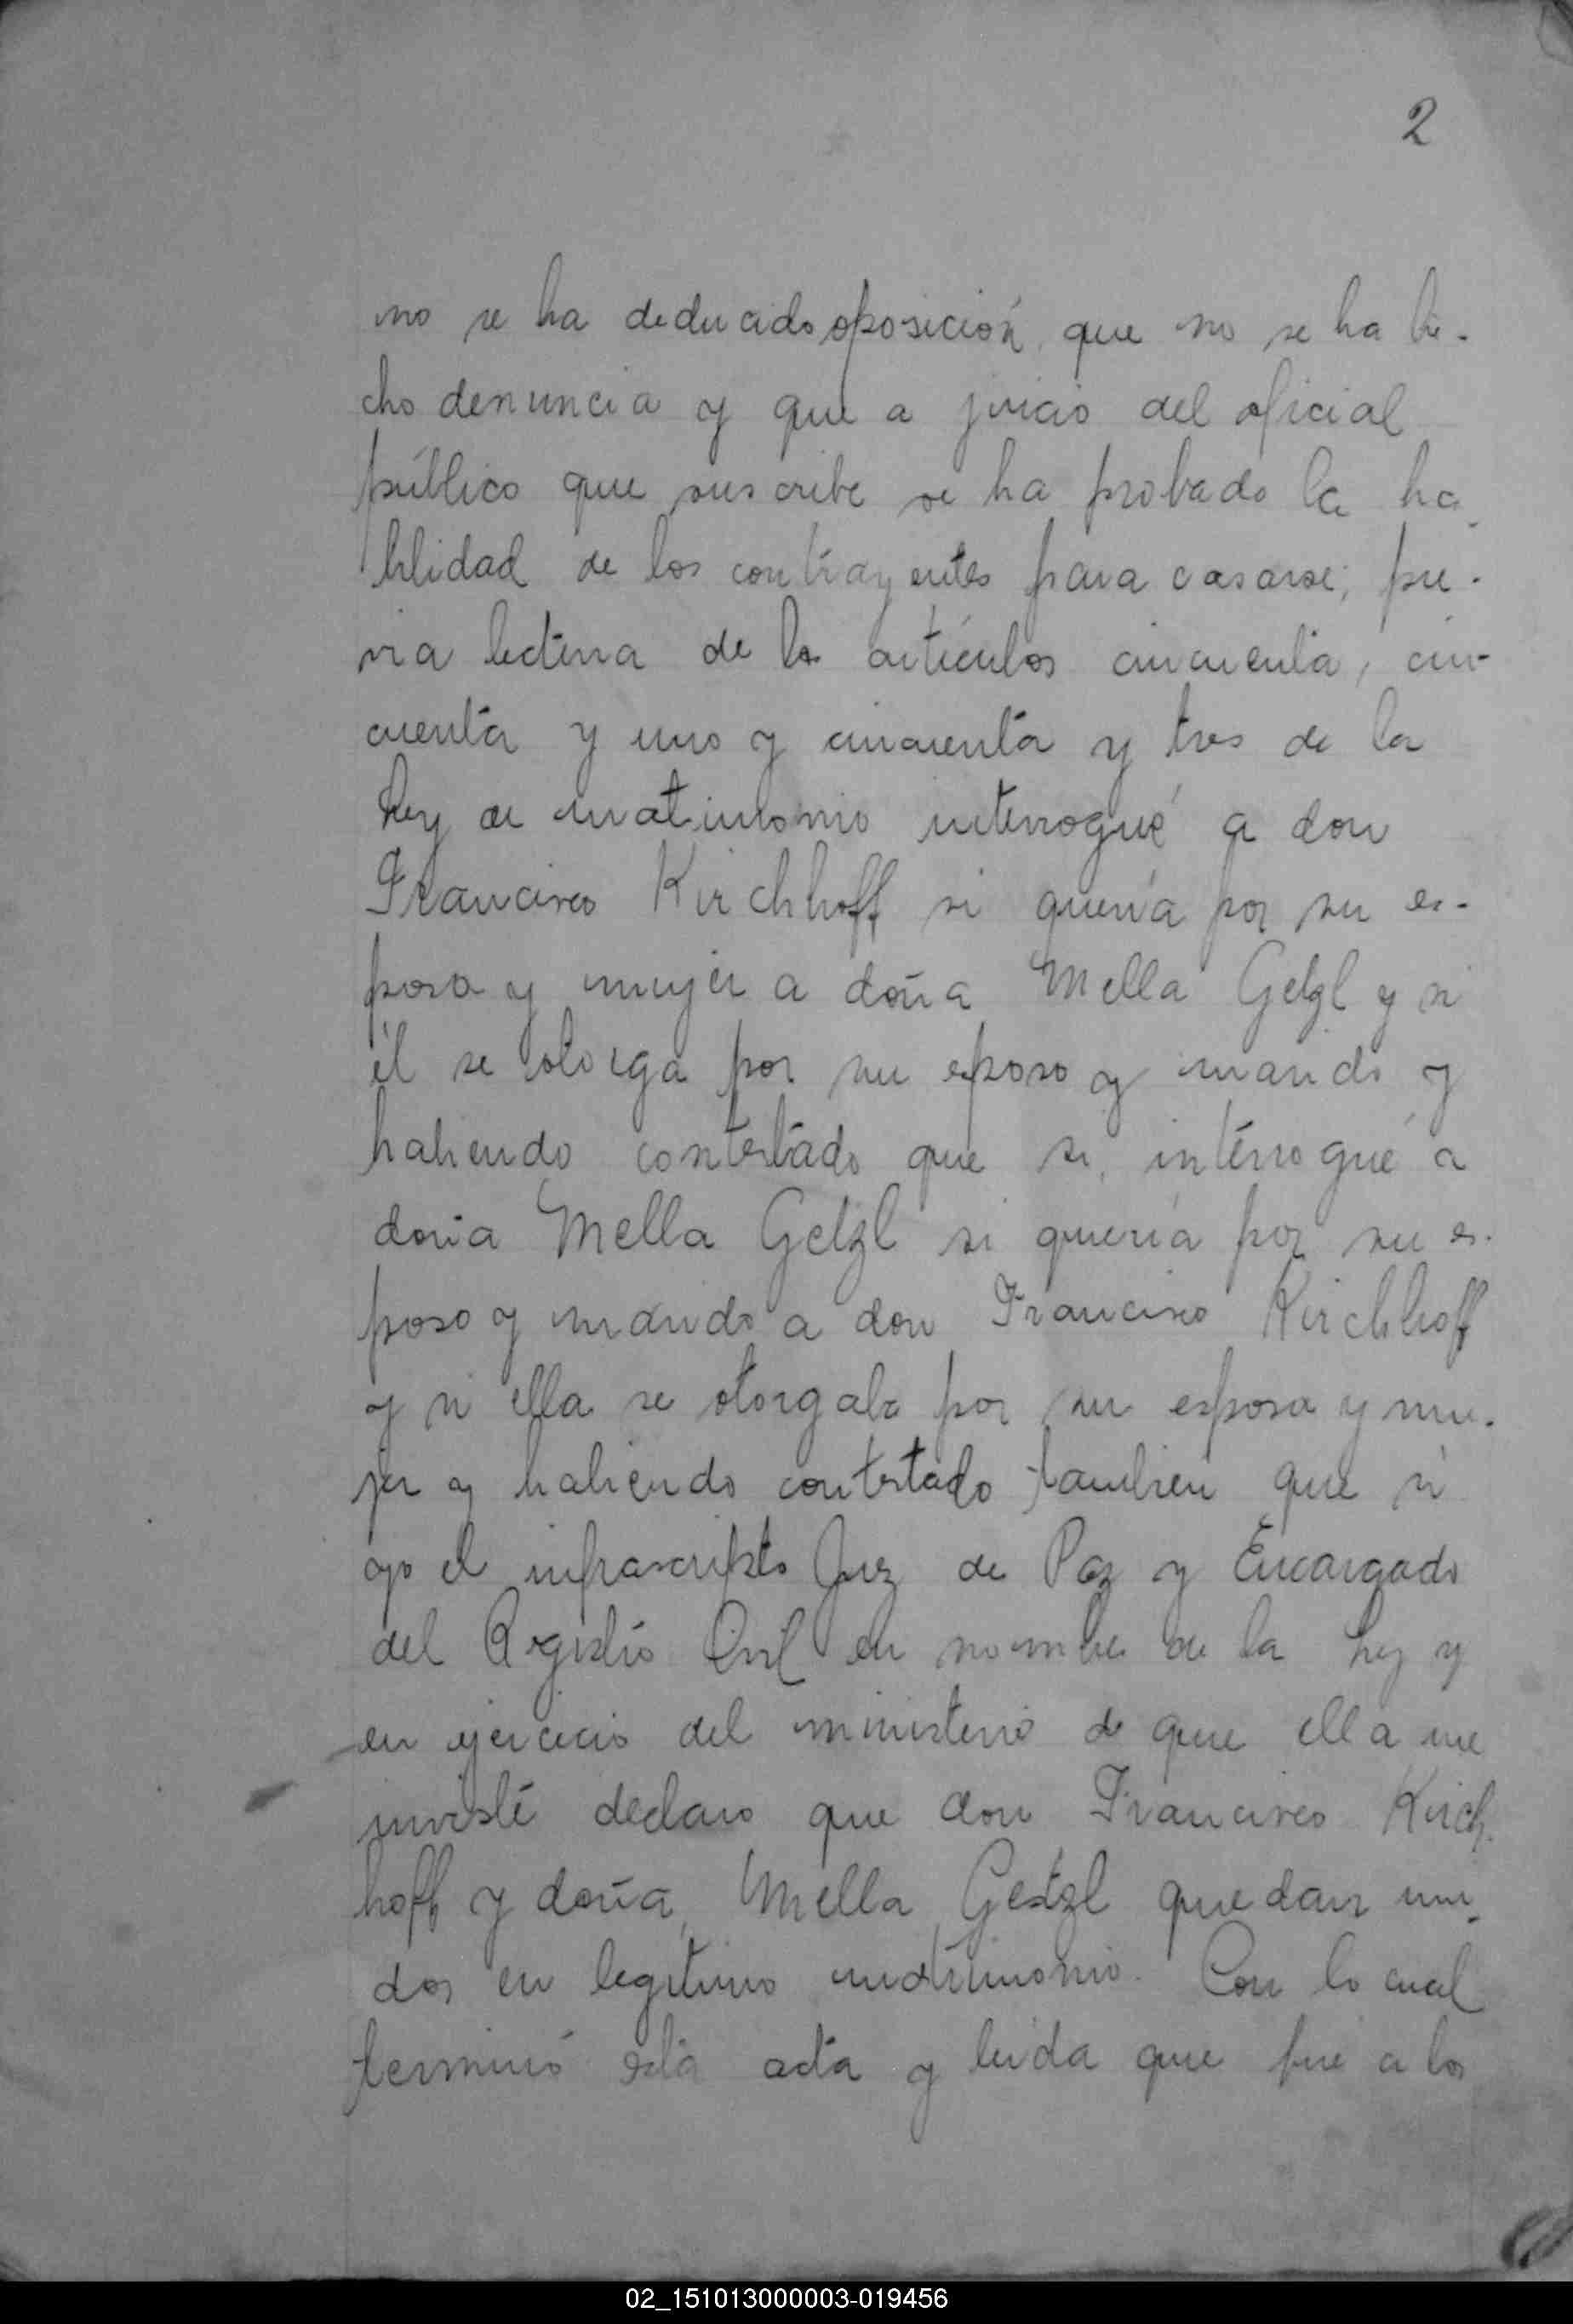 2
no se ha deducido oposición, que no se ha he-
cho denuncia y que a juicio del oficial
público que suscribe se ha probado la ha-
bilidad de los contrayentes para casarse; pre-
via lectura de los artículos cincuenta, cin-
cuenta y uno y cincuenta y tres de la
Ley de matrimonio interrogué a don
Francisco Kirchhoff si quería por su es-
posa y mujer a doña Mella Getzl y si
él se otorga por su esposo y marido y
habiendo contestado que si, interrogué a
doña Mella Getzl si quería por su es-
poso y marido a don Francisco Kirchhoff
y si ella se otorgaba por su esposa y mu-
jer y habiendo contestado tambien que si
yo el infrascripto Juez de Paz y Encargado
del Registro Civil en nombre de la Ley y
en ejercicio del ministerio de que ella me
inviste declaro que don Francisco Kirch-
hoff y doña Mella Getzl quedan uni-
dos en legitimo matrimonio. Con lo cual
terminó esta acta y leida que fue a los
02_151013000003-019456